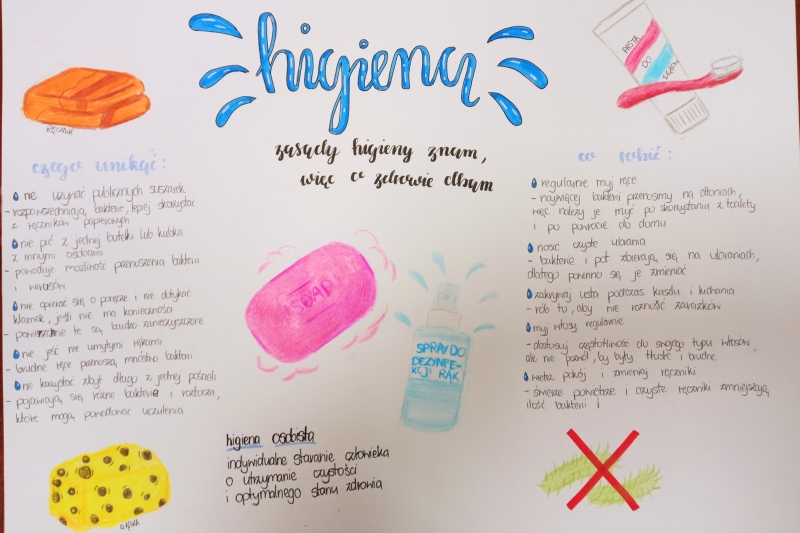 higiena
zasady higieny znam,
więc o zdrowie dbam
RĘCZNIK
PASTA
DO
ZĘBÓW
czego unikać:
nie używać publicznych suszarek
- rozpowszechniają bakterie, lepiej skorzystać
z ręczników papierowych
nie pić z jednej butelki lub kubka
z innymi osobami
- powoduje możliwość przenoszenia bakterii
i wirusów
nie opierać się o poręcze i nie dotykać
klamek, jeśli nie ma konieczności
- powierzchnie te są bardzo zanieczyszczone
nie jeść nie umytymi rękami
- brudne ręce przenoszą mnóstwo bakterii
nie korzystać zbyt długo z jednej pościeli
- pojawiają się różne bakterie i roztocza,
które mogą powodować uczulenia
GĄBKA
SOAP
SPRAY DO
DEZYNFE-
KCJI RĄK
higiena osobista
indywidualne staranie człowieka
o utrzymanie czystości
i optymalnego stanu zdrowia
co robić:
regularnie myj ręce
- najwięcej bakterii przenosimy na dłoniach,
więc należy je myć po skorzystaniu z toalety
i po powrocie do domu
nosić czyste ubrania
- bakterie i pot zbierają się na ubraniach,
dlatego powinno się je zmieniać
zakrywaj usta podczas kaszlu i kichania
- rób to, aby nie roznosić zarazków
myj włosy regularnie
- dostosuj częstotliwość do swojego typu włosów,
ale nie pozwól, by były tłuste i brudne
wietrz pokój i zmieniaj ręczniki
- świeże powietrze i czyste ręczniki zmniejszają
ilość bakterii i